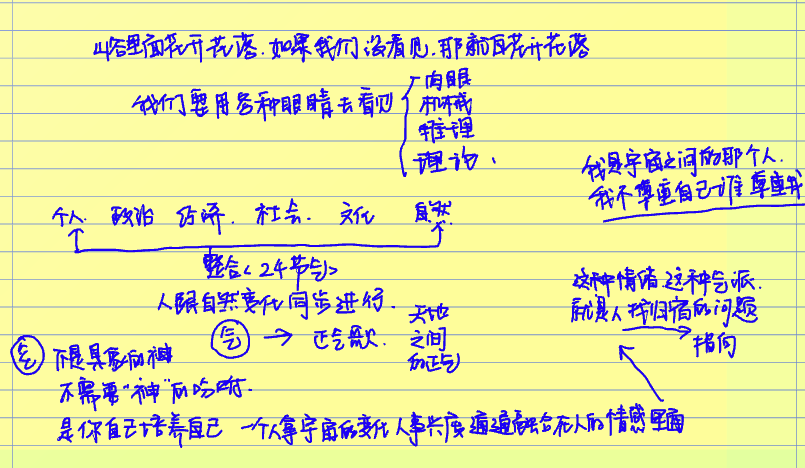 山谷里面花开花落.如果我们没看见.那就白花开花落
我们要用各种眼睛去看见
肉眼
机械
推理
理论、
我是宇宙之间的那个人.
我不尊重自己谁尊重我
个人. 政治 经济. 社会. 文化 自然
整合<24节气>
人跟自然变化同步进行.
气 → 正气歌. 天地之间的正气
这种情绪这种气派.
就是人找归宿的问题
指向
气 不是具象的神
不需要“神”的吩咐.
是你自己培养自己 一个人拿宇宙的变化人事兴废通通融合在人的情感里面